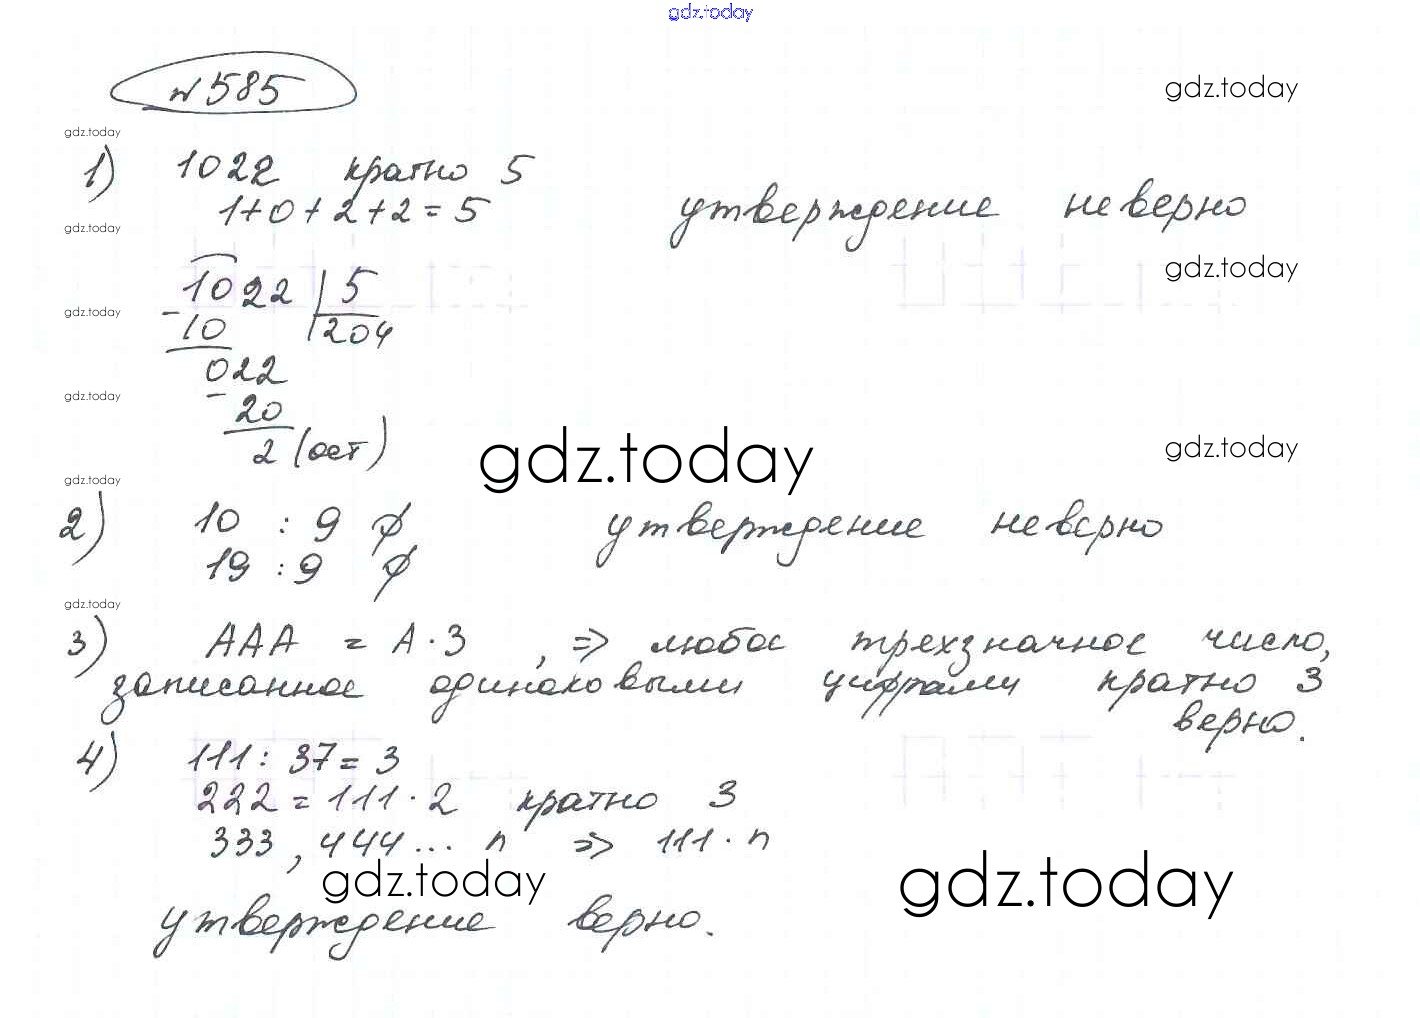 gdz.today
№585
gdz.today
gdz.today
1) 1022 кратно 5
1+0+2+2=5
утверждение неверно
gdz.today
gdz.today
1022 | 5
gdz.today
-10 | 204
022
gdz.today
-20
2 (ост)
gdz.today
gdz.today
gdz.today
2) 10 : 9 ∅ утверждение неверно
19 : 9 ∅
gdz.today
3) AAA = A·3 , => любое трехзначное число,
записанное одинаковыми цифрами кратно 3
верно.
4) 111 : 37 = 3
222 = 111·2 кратно 3
333, 444 ... n => 111·n
gdz.today
gdz.today
утверждение верно.